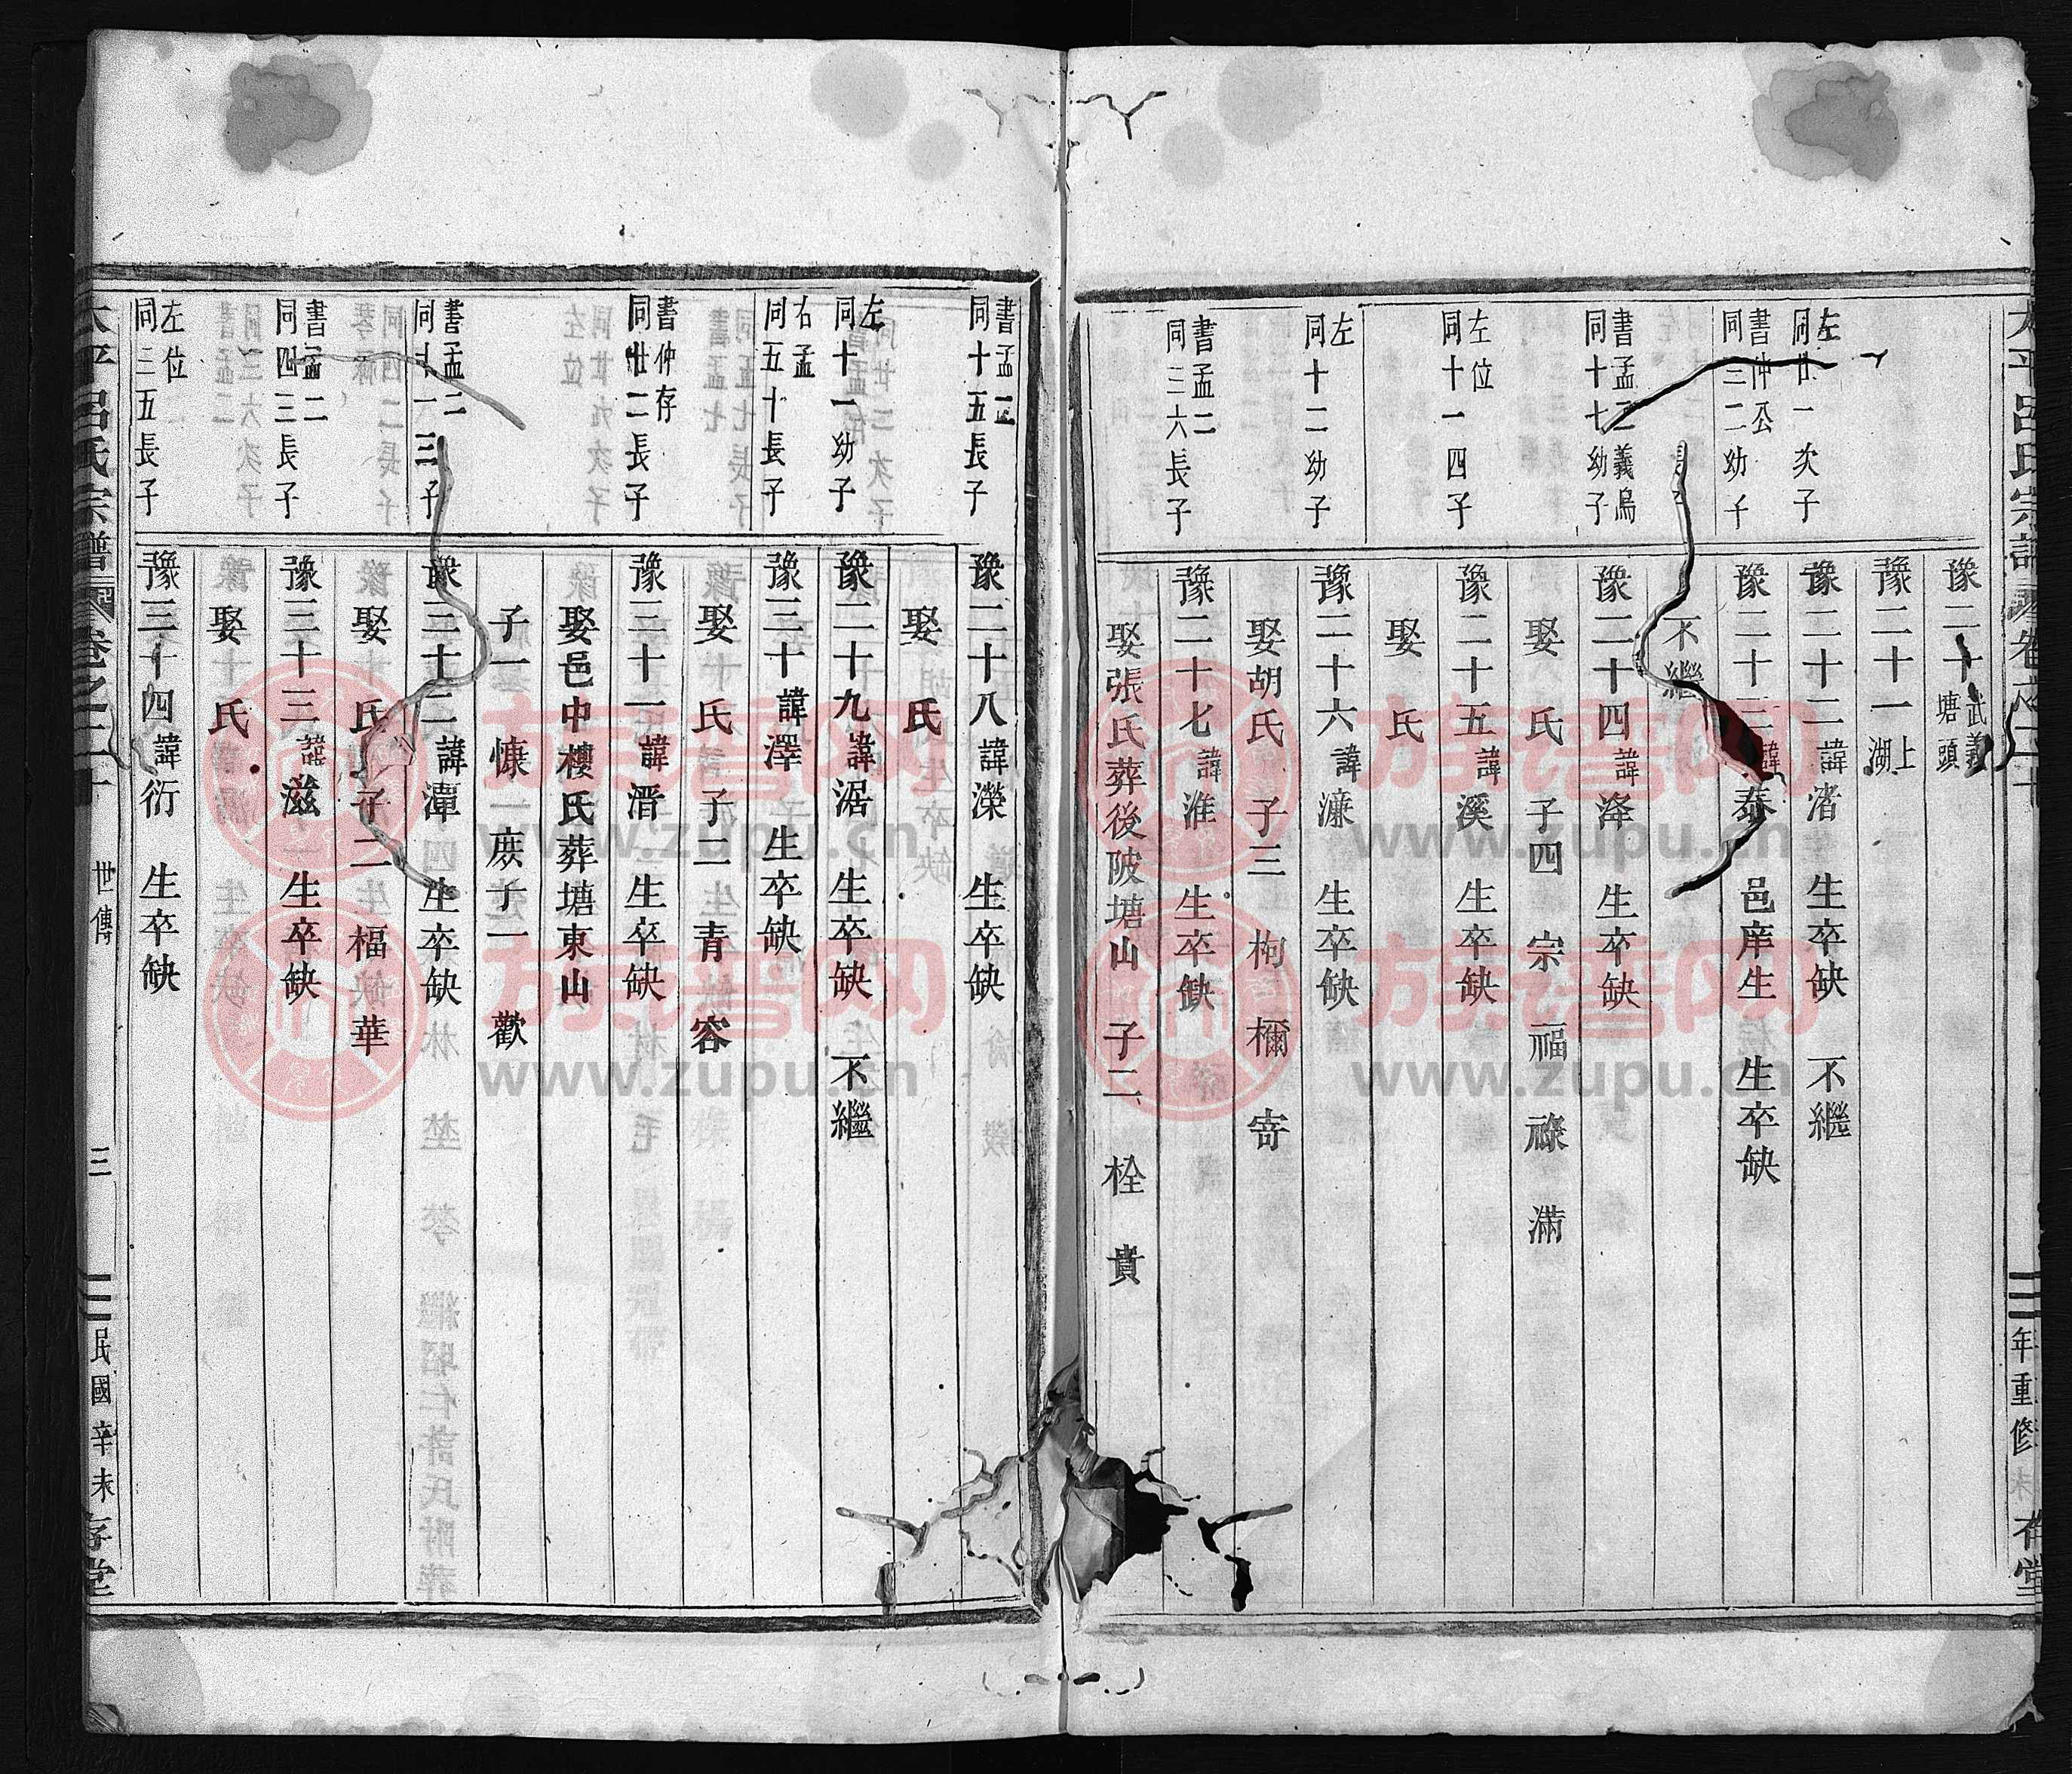 太平呂氏宗譜
豫二十 武義塘頭
豫二十一 上湖
左
同廿一次子
豫二十二諱渚 生卒缺 不繼
書仲公
同三二幼子
豫二十三諱泰 邑庠生 生卒缺
不繼
書孟二義烏
同十七幼子
豫二十四諱洚 生卒缺
娶 氏 子四 宗 福 祿 滿
左位
同十一四子
豫二十五諱溪 生卒缺
娶 氏
左
同十二幼子
豫二十六諱濂 生卒缺
娶胡氏 子三 枸 檷 寄
書孟二
同三六長子
豫二十七諱淮 生卒缺
娶張氏葬後陂塘山 子二 栓 貴
年重修
書孟二
同十五長子
豫二十八諱濚 生卒缺
娶 氏
左
同十一幼子
豫二十九諱涺 生卒缺 不繼
右孟
同五十長子
豫三十諱澤 生卒缺
娶 氏 子二 青 容
書仲存
同廿二長子
豫三十一諱溍 生卒缺
娶邑中樓氏葬塘東山
子一 慷 庶子一 歡
書孟二
同十一三子
豫三十二諱潭 生卒缺
娶 氏 子二 楅 華
書孟二
同四三長子
豫三十三諱滋 生卒缺
娶 氏
左位
同三五長子
豫三十四諱衍 生卒缺
太平呂氏宗譜 卷之二十 世傳 三 民國辛未 存堂
族谱网
www.zupu.cn
族谱网
www.zupu.cn
族谱网
www.zupu.cn
族谱网
www.zupu.cn